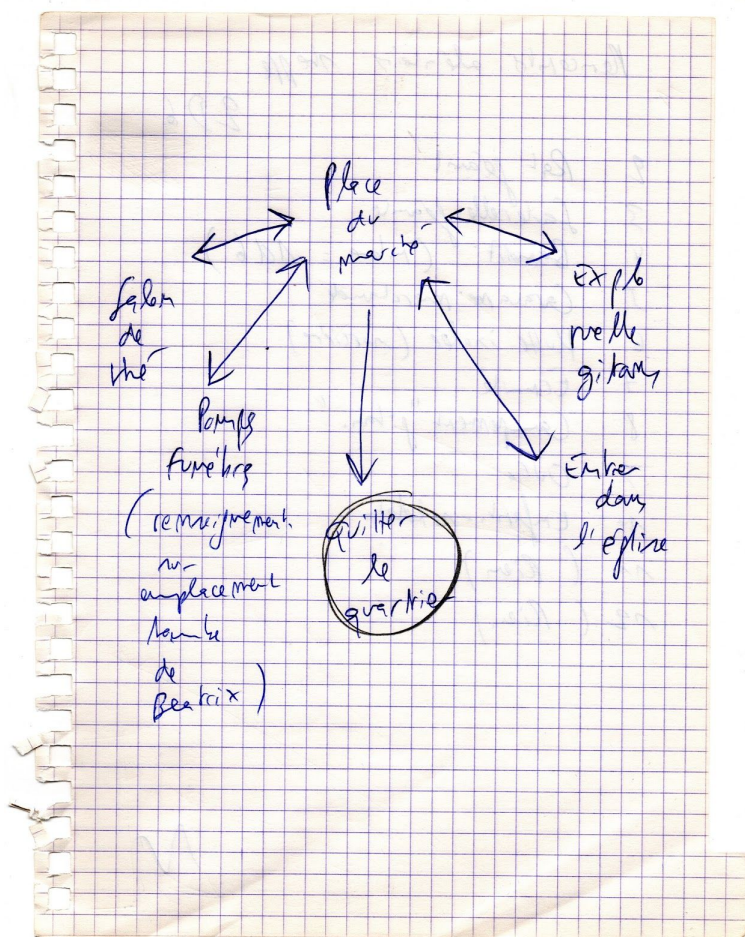 Place
du
marché
Salon
de
thé
Pompes
funèbres
(renseignement
sur
emplacement
tombe
de
Beatrix)
quitter
le
quartier
Explo
ruelle
gitans
Entrer
dans
l'église